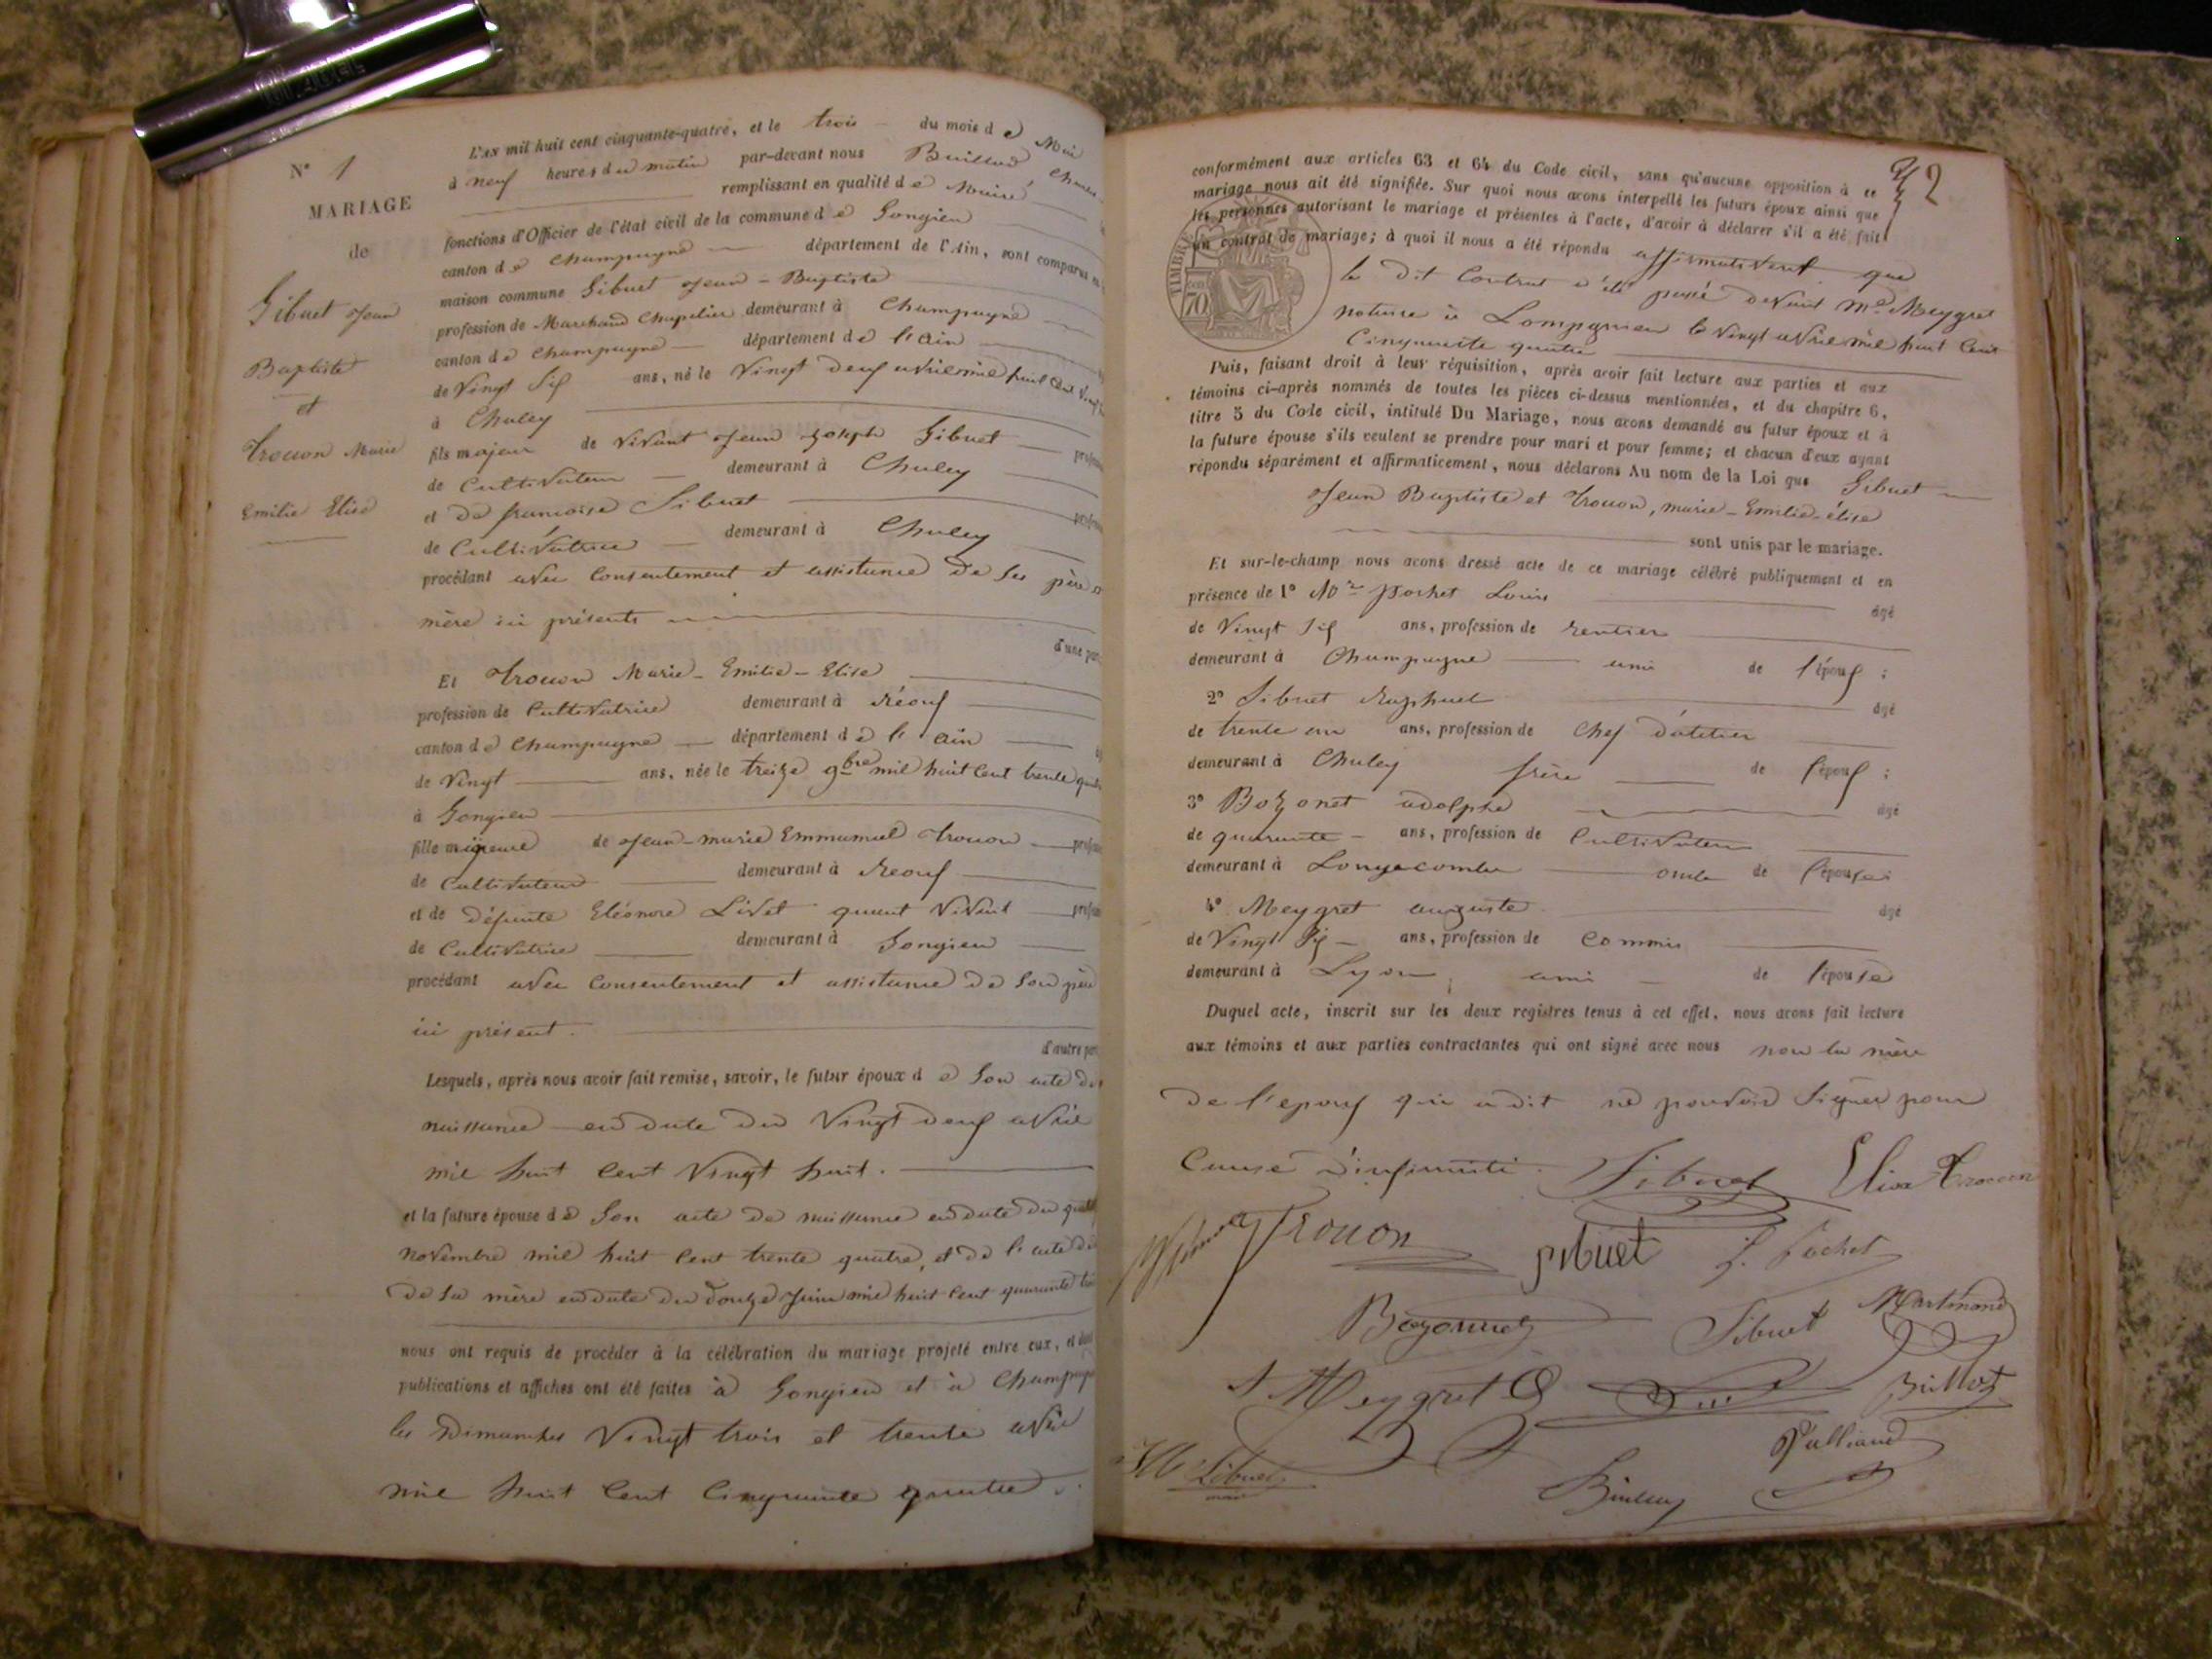 N° 1
MARIAGE
de
Sibuet Jean
Baptiste
et
Trouon Marie
Emilie Elise
L'an mil huit cent cinquante-quatre, et le trois du mois de Mai
à neuf heures du matin par-devant nous
remplissant en qualité de Maire
fonctions d'Officier de l'état civil de la commune de Songieu
canton de Champagne département de l'Ain, sont comparus en
maison commune Sibuet Jean-Baptiste
profession de Marchand Chapelier demeurant à Champagne
canton de Champagne département de l'ain
de Vingt Six ans, né le Vingt deux avril mil huit cent Vingt
à Chaley
fils majeur de vivant Jean Joseph Sibuet
de Cultivateur demeurant à Chaley
et de françoise Sibuet
de Cultivatrice demeurant à Chaley
procédant avec consentement et assistance de ses père
mère ici présents
d'une part
Et Trouon Marie-Emilie-Elise
profession de Cultivatrice demeurant à réoux
canton de Champagne département de l'ain
de Vingt ans, née le treize 9bre mil huit cent trente
à Songieu
fille mineure de Jean-marie Emmanuel Trouon
de Cultivateur demeurant à réoux
et de défunte Eléonore Livet quant vivait
de Cultivatrice demeurant à Songieu
procédant avec consentement et assistance de son père
ici présent.
d'autre part
Lesquels, après nous avoir fait remise, savoir, le futur époux de son acte de
naissance en date du Vingt deux avril
mil huit cent Vingt huit.
et la future épouse de son acte de naissance en date du
novembre mil huit cent trente quatre, et de l'acte de
de sa mère en date du douze Juin mil huit cent quarante
nous ont requis de procéder à la célébration du mariage projeté entre eux, et dont
publications et affiches ont été faites à Songieu et à Champagne
les Dimanches Vingt trois et trente avril
mil huit cent Cinquante quatre.
conformément aux articles 63 et 64 du Code civil, sans qu'aucune opposition à ce
mariage nous ait été signifiée. Sur quoi nous avons interpellé les futurs époux ainsi que
les personnes autorisant le mariage et présentes à l'acte, d'avoir à déclarer s'il a été fait
un contrat de mariage; à quoi il nous a été répondu affirmativent que
TIMBRE
70
le dit Contrat a été passé devant Me Meygret
notaire à Lompgnieu le vingt avril mil huit cent
Cinquante quatre
Puis, faisant droit à leur réquisition, après avoir fait lecture aux parties et aux
témoins ci-après nommés de toutes les pièces ci-dessus mentionnées, et du chapitre 6,
titre 5 du Code civil, intitulé Du Mariage, nous avons demandé au futur époux et à
la future épouse s'ils veulent se prendre pour mari et pour femme; et chacun d'eux ayant
répondu séparément et affirmativement, nous déclarons Au nom de la Loi que Sibuet
Jean Baptiste et Trouon, marie-Emilie-élise
sont unis par le mariage.
Et sur-le-champ nous avons dressé acte de ce mariage célébré publiquement et en
présence de 1° Mr pochet Louis
âgé
de Vingt Six ans, profession de rentier
demeurant à Champagne ami de l'époux ;
2° Sibuet Raphael
âgé
de trente un ans, profession de Chef d'atelier
demeurant à Chaley frère de l'époux ;
3° Bozonet adolphe
âgé
de quarante ans, profession de Cultivateur
demeurant à Longecombe oncle de l'épouse;
4° Meygret auguste
âgé
de Vingt Six ans, profession de Commis
demeurant à Lyon, ami de l'épouse
Duquel acte, inscrit sur les deux registres tenus à cet effet, nous avons fait lecture
aux témoins et aux parties contractantes qui ont signé avec nous non la mère
de l'époux qui a dit ne pouvoir signer pour
Cause d'infirmité.
Sibuet Elise Trouon
Trouon Sibuet J. Pochet
Bozonnet Sibuet Martinand
A Meygret Billot
Sibuet Palliand